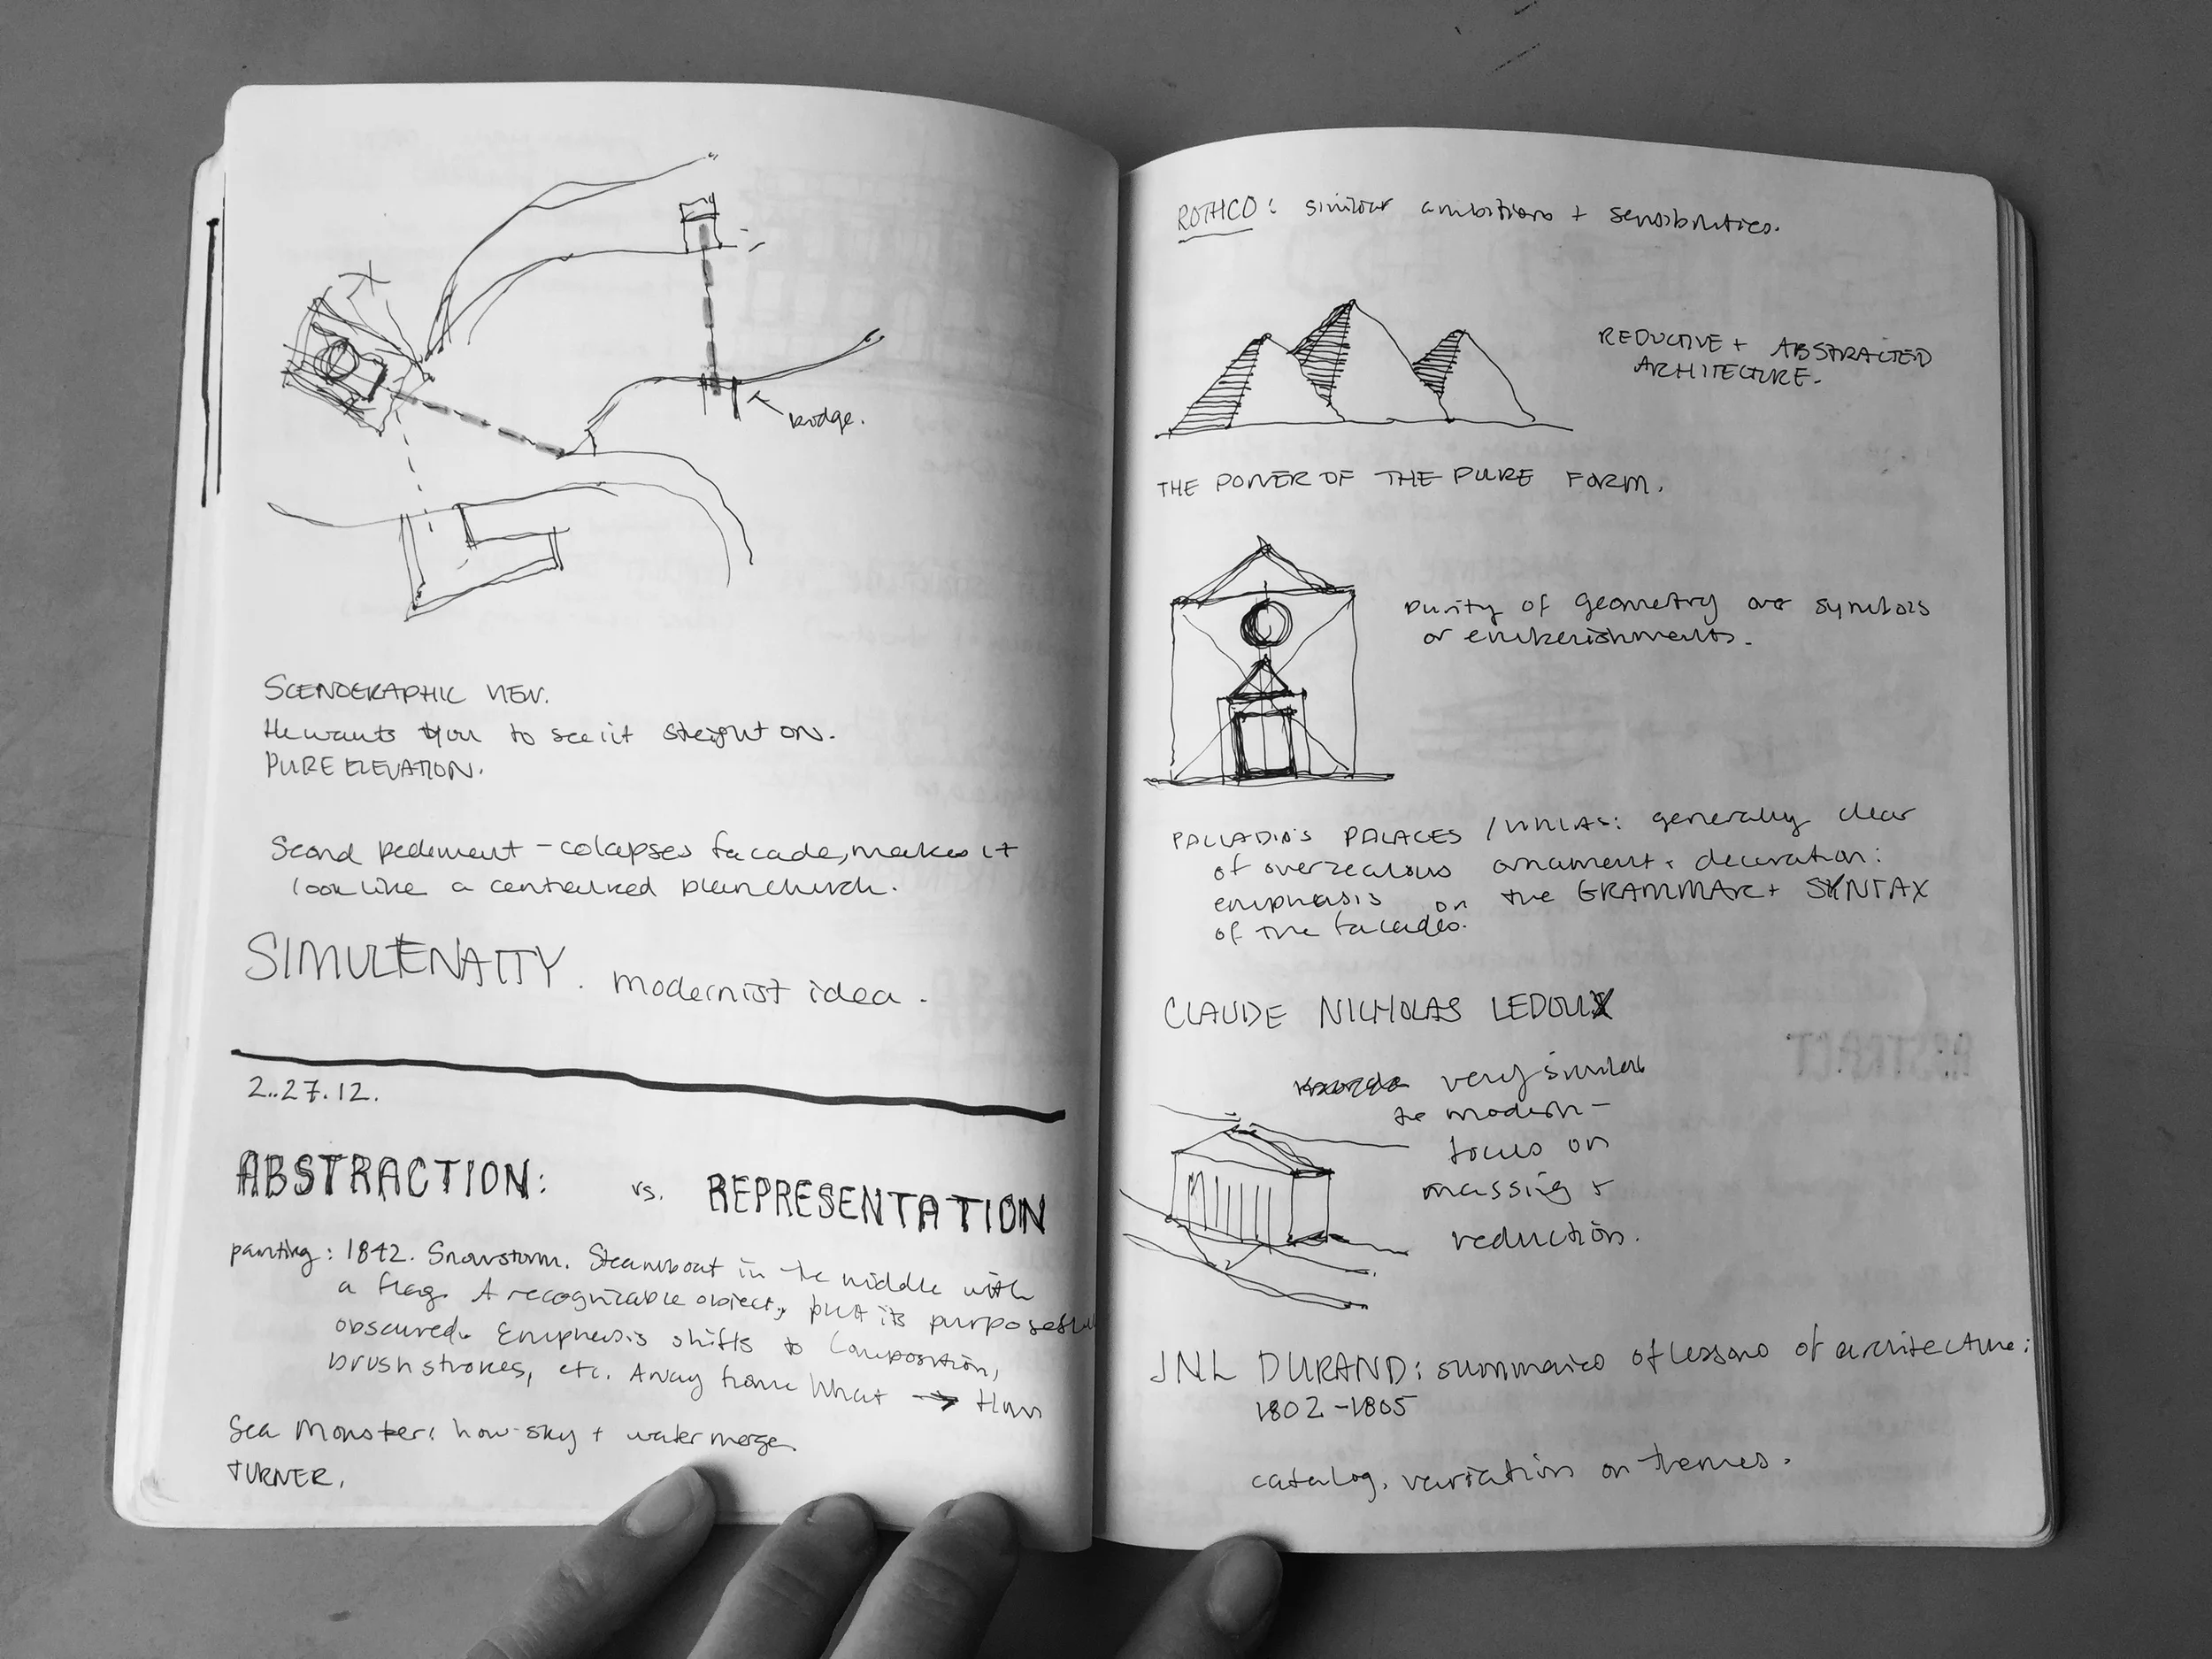 bridge.
SCENOGRAPHIC VIEW.
He wants you to see it streight on.
PURE ELEVATION.
Second pediment - colapses facade, makes it
look like a centralized plan church.
SIMULTENAITY. modernist idea.
2.27.12.
ABSTRACTION: vs. REPRESENTATION
painting: 1842. Snowstorm. Steamboat in the middle with
a flag. A recognizable object, but its purposefully
obscured. Emphasis shifts to Composition,
brush strokes, etc. Away from What → How
Sea Monster: how sky + water merge.
TURNER.
ROTHCO: similar ambitions + sensibilities.
REDUCTIVE + ABSTRACTED
ARCHITECTURE.
THE POWER OF THE PURE FORM.
purity of geometry over symbols
or embellishments.
PALLADIO'S PALACES / VILLAS: generally clear
of overzealous ornament + decoration:
emphasis on the GRAMMAR + SYNTAX
of the facades.
CLAUDE NICHOLAS LEDOUX
very similar
to modern -
focus on
massing +
reduction.
JNL DURAND: summaries of lessons of architecture:
1802-1805
catalog, variation on themes.